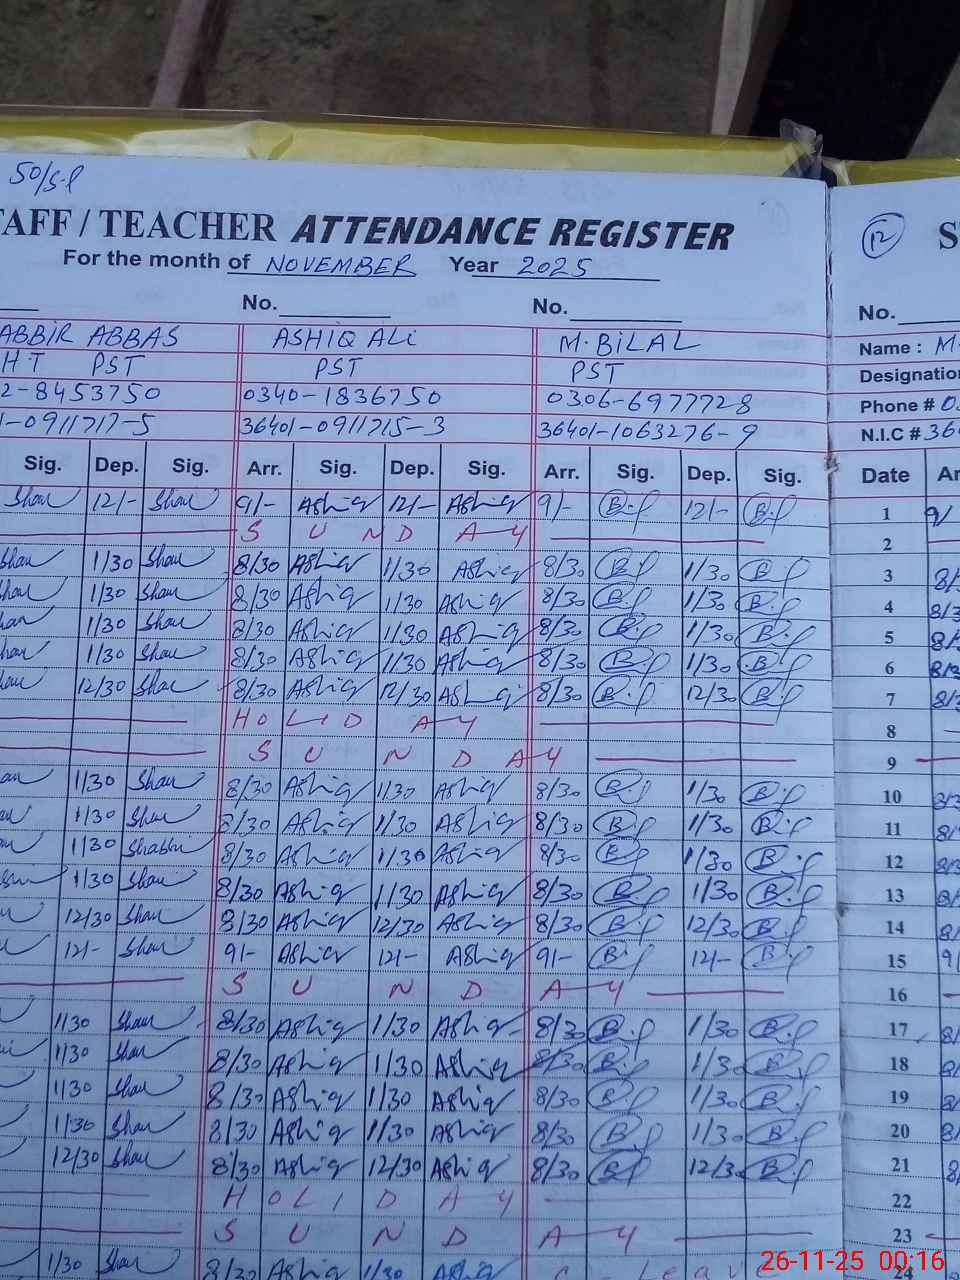 50/5-l
TAFF / TEACHER ATTENDANCE REGISTER
For the month of NOVEMBER Year 2025
No. No.
ABBIR ABBAS ASHIQ ALi M. BiLAL
H.T PST PST PST
2-8453750 0340-1836750 0306-6977728
1-0911717-5 36401-0911715-3 36401-1063276-9
Sig. Dep. Sig. Arr. Sig. Dep. Sig. Arr. Sig. Dep. Sig.
Shau 12/- Shau 9/- Ashiq 12/- Ashiq 9/- 12/-
SUNDAY
1/30 Shau 8/30 Ashiq 1/30 Ashiq 8/30 1/30
1/30 Shau 8/30 Ashiq 1/30 Ashiq 8/30 1/30
1/30 Shau 8/30 Ashiq 1/30 Ashiq 8/30 1/30
1/30 Shau 8/30 Ashiq 1/30 Ashiq 8/30 1/30
12/30 Shau 8/30 Ashiq 12/30 Ashiq 8/30 12/30
HOLIDAY
SUNDAY
1/30 Shau 8/30 Ashiq 1/30 Ashiq 8/30 1/30
1/30 Shau 8/30 Ashiq 1/30 Ashiq 8/30 1/30
1/30 Shabbir 8/30 Ashiq 1/30 Ashiq 8/30 1/30
1/30 Shau 8/30 Ashiq 1/30 Ashiq 8/30 1/30
12/30 Shau 8/30 Ashiq 12/30 Ashiq 8/30 12/30
12/- Shau 9/- Ashiq 12/- Ashiq 9/- 12/-
SUNDAY
1/30 Shau 8/30 Ashiq 1/30 Ashiq 8/30 1/30
1/30 Shau 8/30 Ashiq 1/30 Ashiq 8/30 1/30
1/30 Shau 8/30 Ashiq 1/30 Ashiq 8/30 1/30
1/30 Shau 8/30 Ashiq 1/30 Ashiq 8/30 1/30
12/30 Shau 8/30 Ashiq 12/30 Ashiq 8/30 12/30
HOLIDAY
SUNDAY
1/30 Shau 8/30 Ashiq 1/30 Leave
12 S
No.
Name : M
Designation
Phone # 0
N.I.C # 36
Date Ar
1 9/
2
3 8/3
4 8/3
5 8/3
6 8/3
7 8/3
8
9
10 8/3
11 8/
12 8/3
13 8/
14 8/
15 9/
16
17 8/
18 8/
19 8/
20 8/
21 8/
22
23
24
26-11-25 00:16